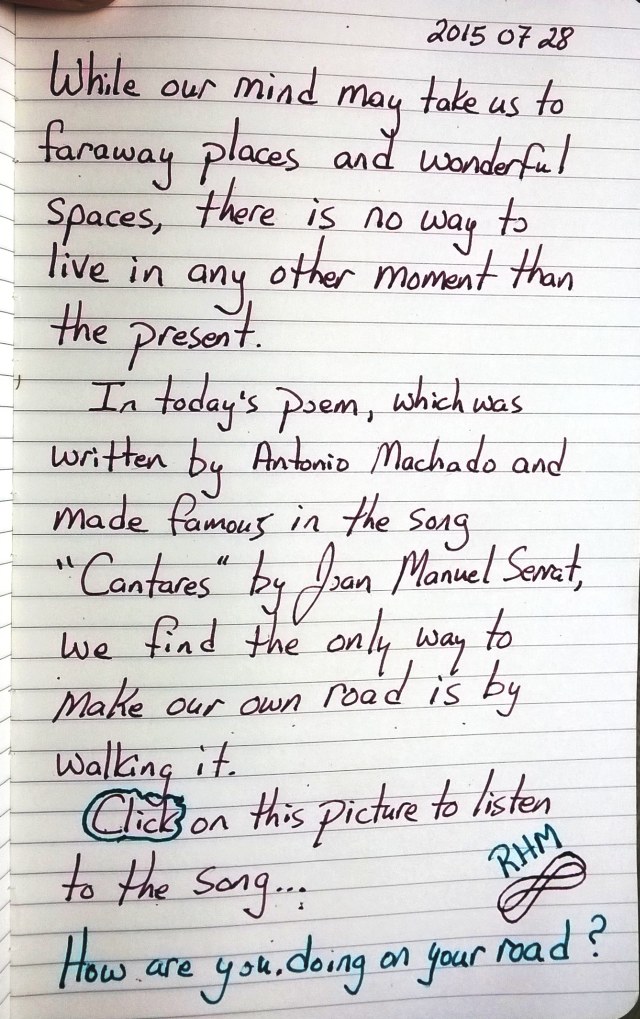 2015 07 28
While our mind may take us to
faraway places and wonderful
spaces, there is no way to
live in any other moment than
the present.
In today's poem, which was
written by Antonio Machado and
made famous in the song
"Cantares" by Joan Manuel Serrat,
we find the only way to
make our own road is by
walking it.
Click on this picture to listen
to the song...
RHM
How are you doing on your road?